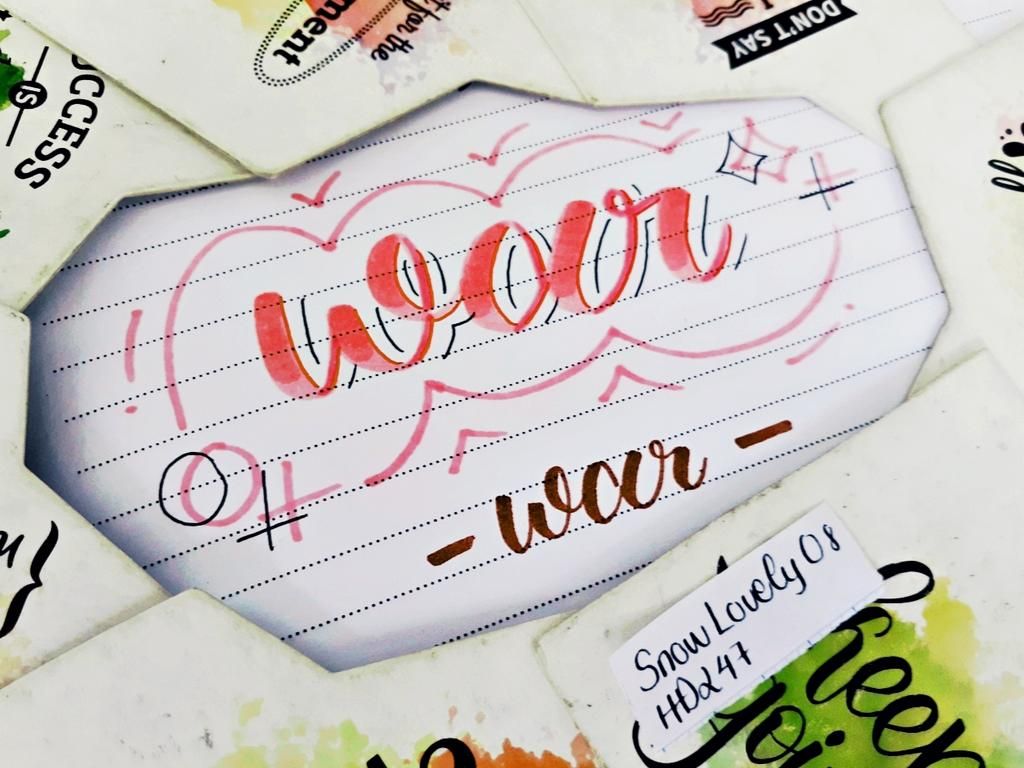 ment
it for the
DON'T SAY
SUCCESS
IS
woar
- woar -
Snow Lovely 08
HD247